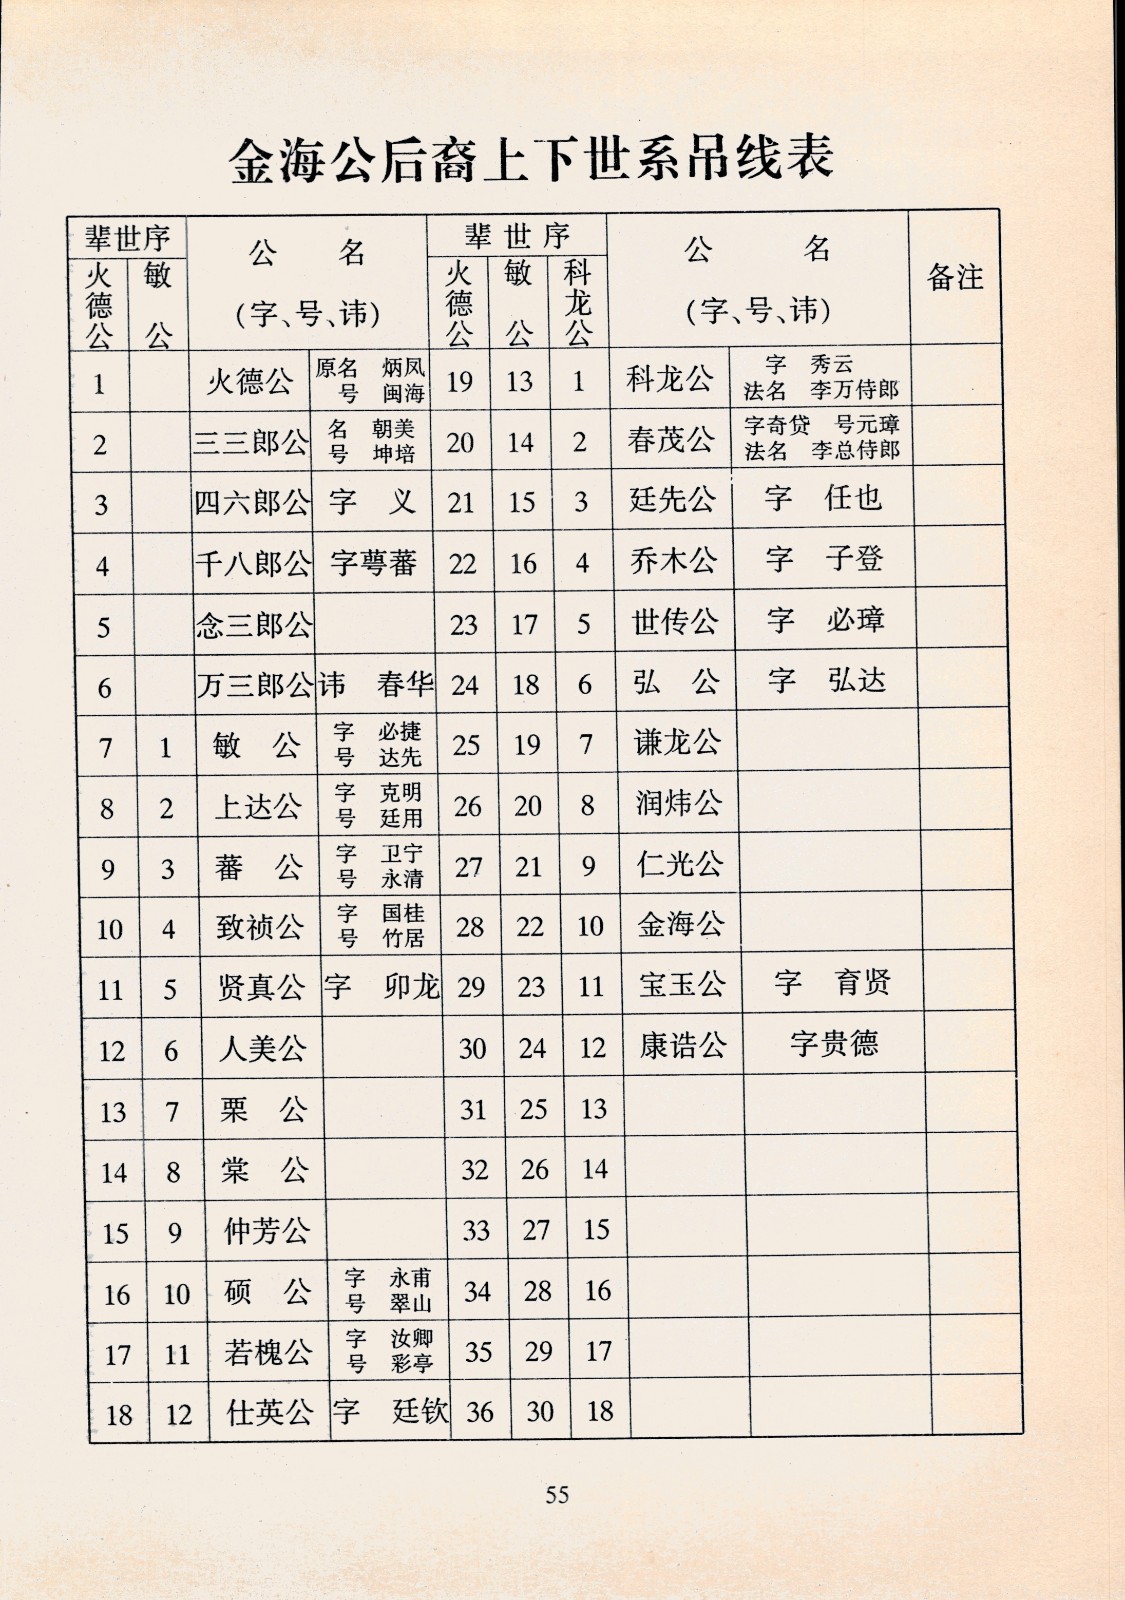 金海公后裔上下世系吊线表
辈世序 公 名 辈世序 公 名 备注
火德公 敏公 (字、号、讳) 火德公 敏公 科龙公 (字、号、讳)
1 火德公 原名 炳凤 号 闽海 19 13 1 科龙公 字 秀云 法名 李万侍郎
2 三三郎公 名 朝美 号 坤培 20 14 2 春茂公 字奇贷 号元璋 法名 李总侍郎
3 四六郎公 字 义 21 15 3 廷先公 字 任也
4 千八郎公 字萼蕃 22 16 4 乔木公 字 子登
5 念三郎公 23 17 5 世传公 字 必璋
6 万三郎公 讳 春华 24 18 6 弘 公 字 弘达
7 1 敏 公 字 必捷 号 达先 25 19 7 谦龙公
8 2 上达公 字 克明 号 廷用 26 20 8 润炜公
9 3 蕃 公 字 卫宁 号 永清 27 21 9 仁光公
10 4 致祯公 字 国桂 号 竹居 28 22 10 金海公
11 5 贤真公 字 卯龙 29 23 11 宝玉公 字 育贤
12 6 人美公 30 24 12 康诰公 字贵德
13 7 栗 公 31 25 13
14 8 棠 公 32 26 14
15 9 仲芳公 33 27 15
16 10 硕 公 字 永甫 号 翠山 34 28 16
17 11 若槐公 字 汝卿 号 彩亭 35 29 17
18 12 仕英公 字 廷钦 36 30 18
55